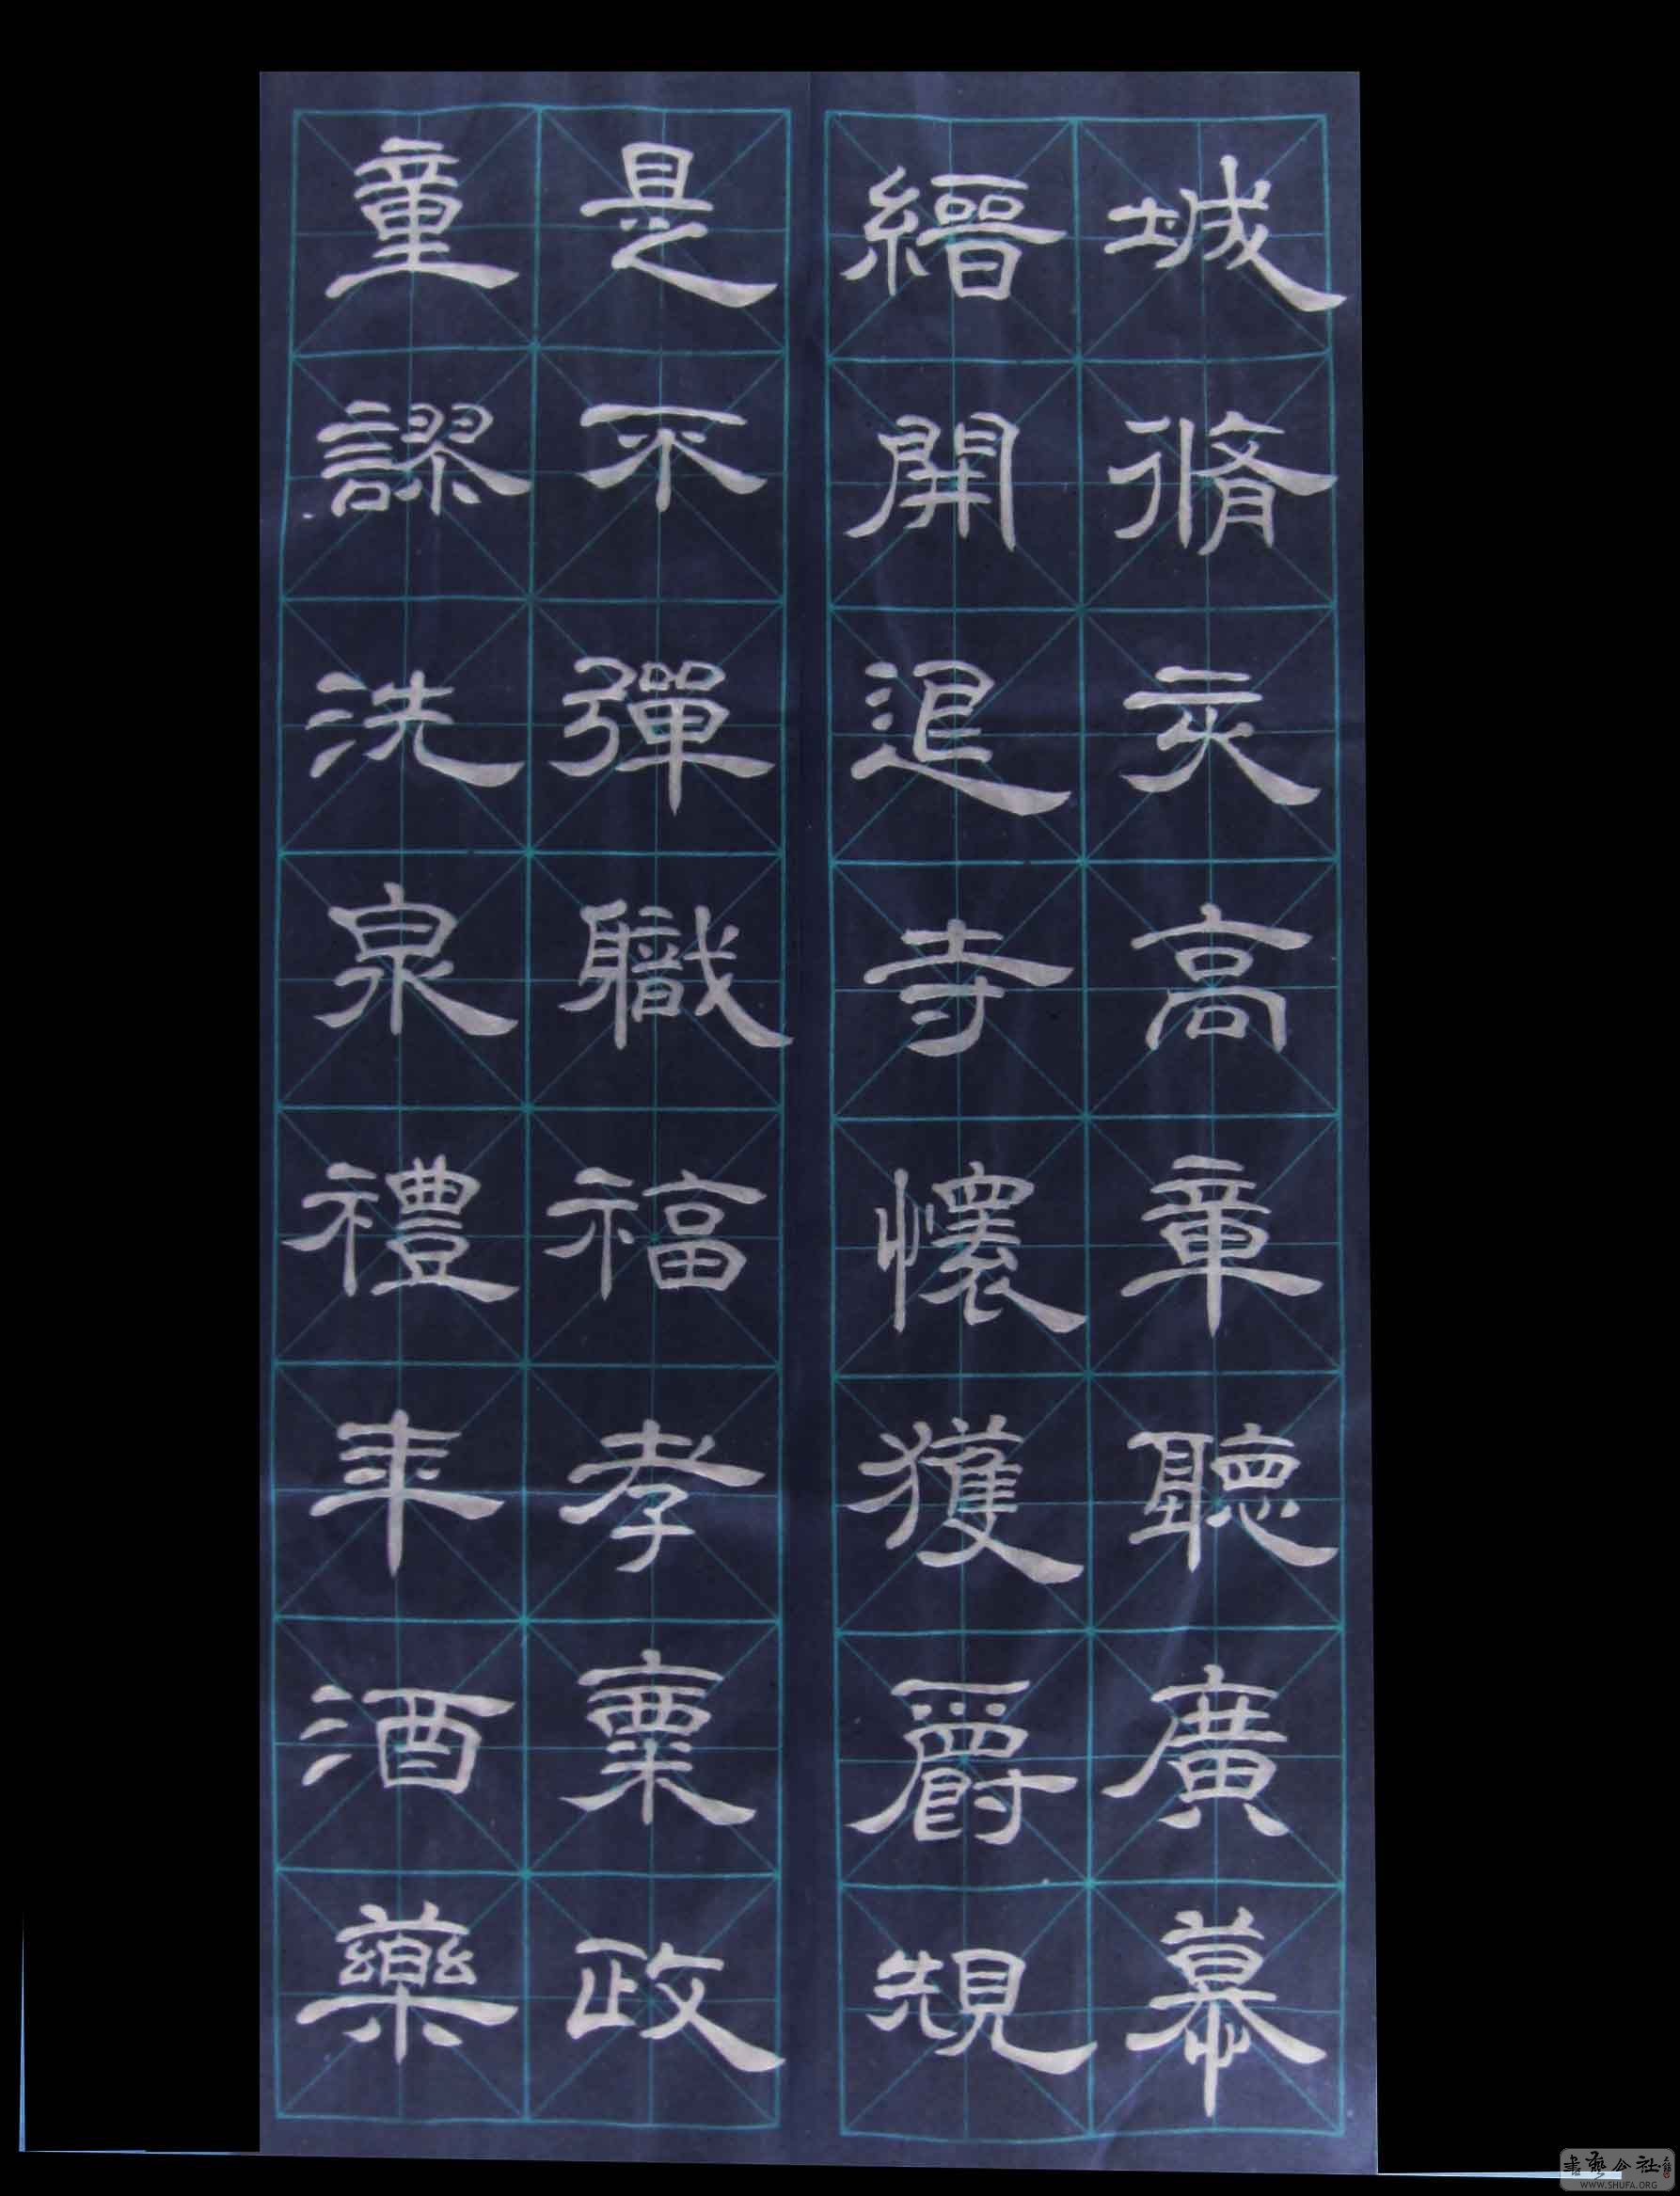 城脩亥高章聽廣慕
縉開退寺懷獲爵覜
是不彈職福孝稟政
童謬洗泉禮年酒藥
書藝公社
WWW.SHUFA.ORG